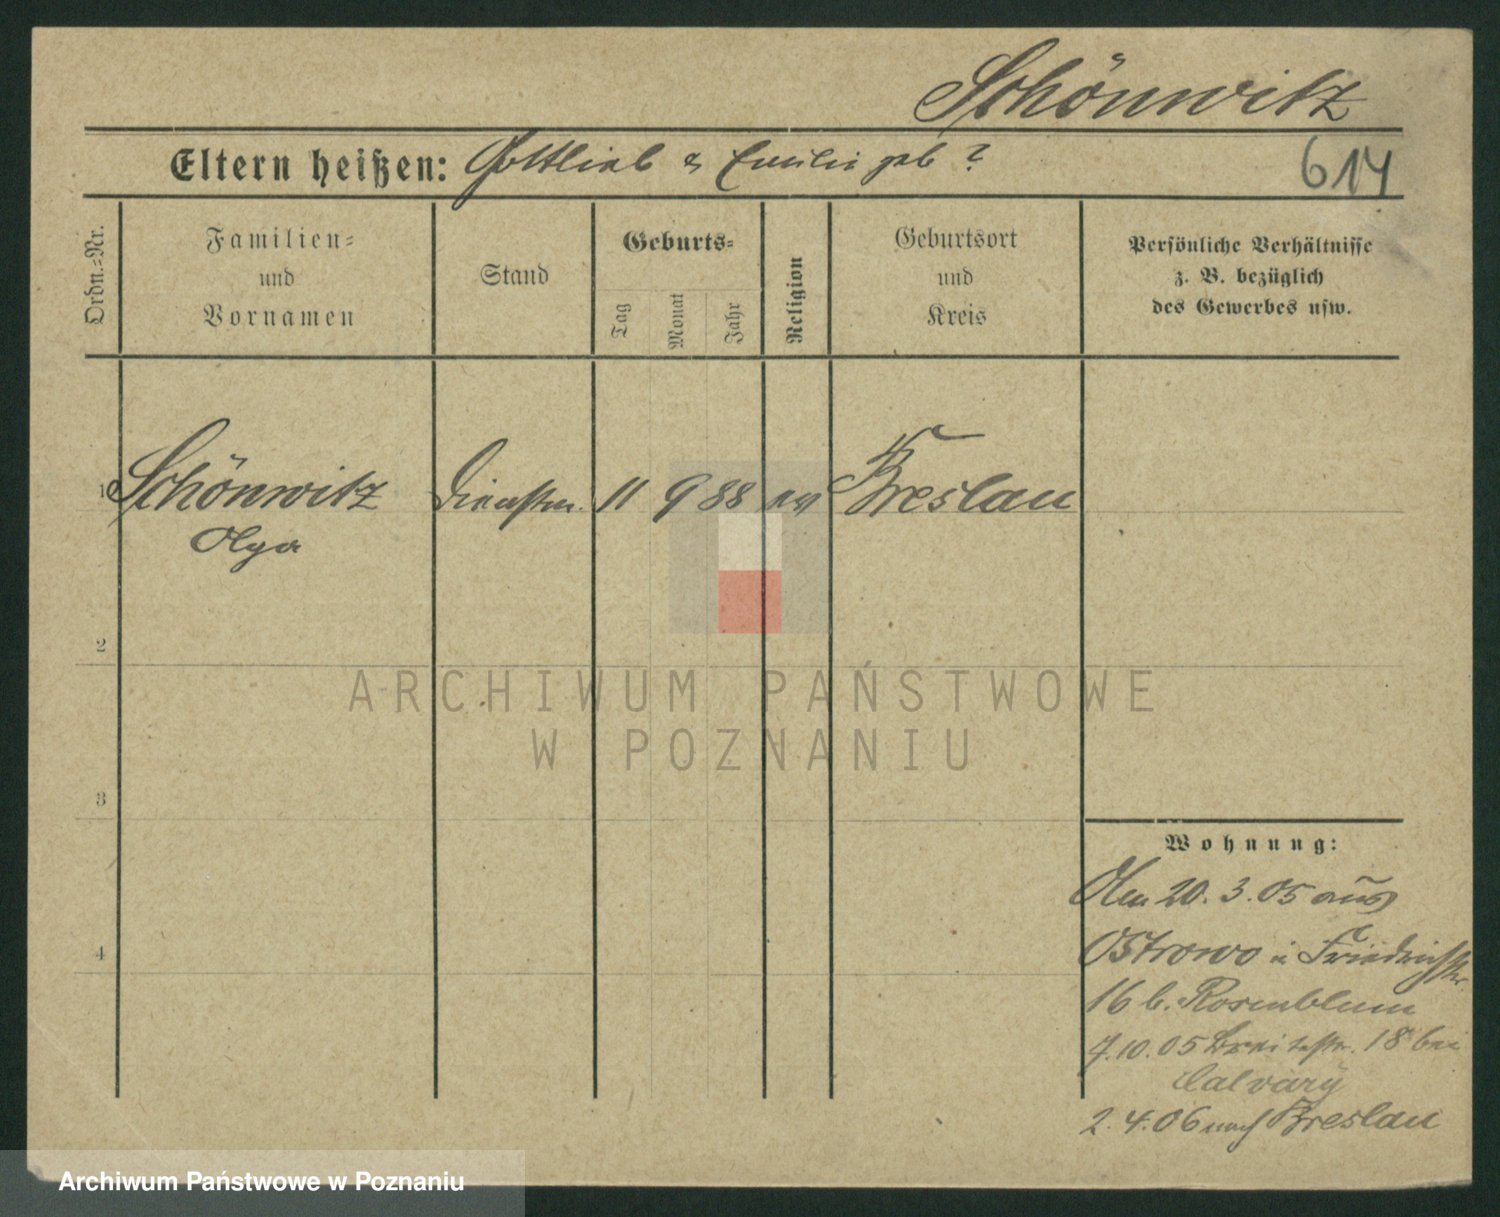 Schönwitz
Eltern heißen: Gottlieb & Emilie geb ?
614
Ordn.-Nr.
Familien-
und
Vornamen
Stand
Geburts-
Tag
Monat
Jahr
Religion
Geburtsort
und
Kreis
Persönliche Verhältnisse
z. B. bezüglich
des Gewerbes usw.
1 Schönwitz Dienstm. 11 9 88 ev Breslau
Olga
2
ARCHIWUM PAŃSTWOWE
W POZNANIU
3
Wohnung:
20. 3. 05 aus
4
Ostrowo Friedrichstr
16 b. Rosenblum
7.10.05 Breitestr. 18 bei
Calvary
2. 4. 06 nach Breslau
Archiwum Państwowe w Poznaniu